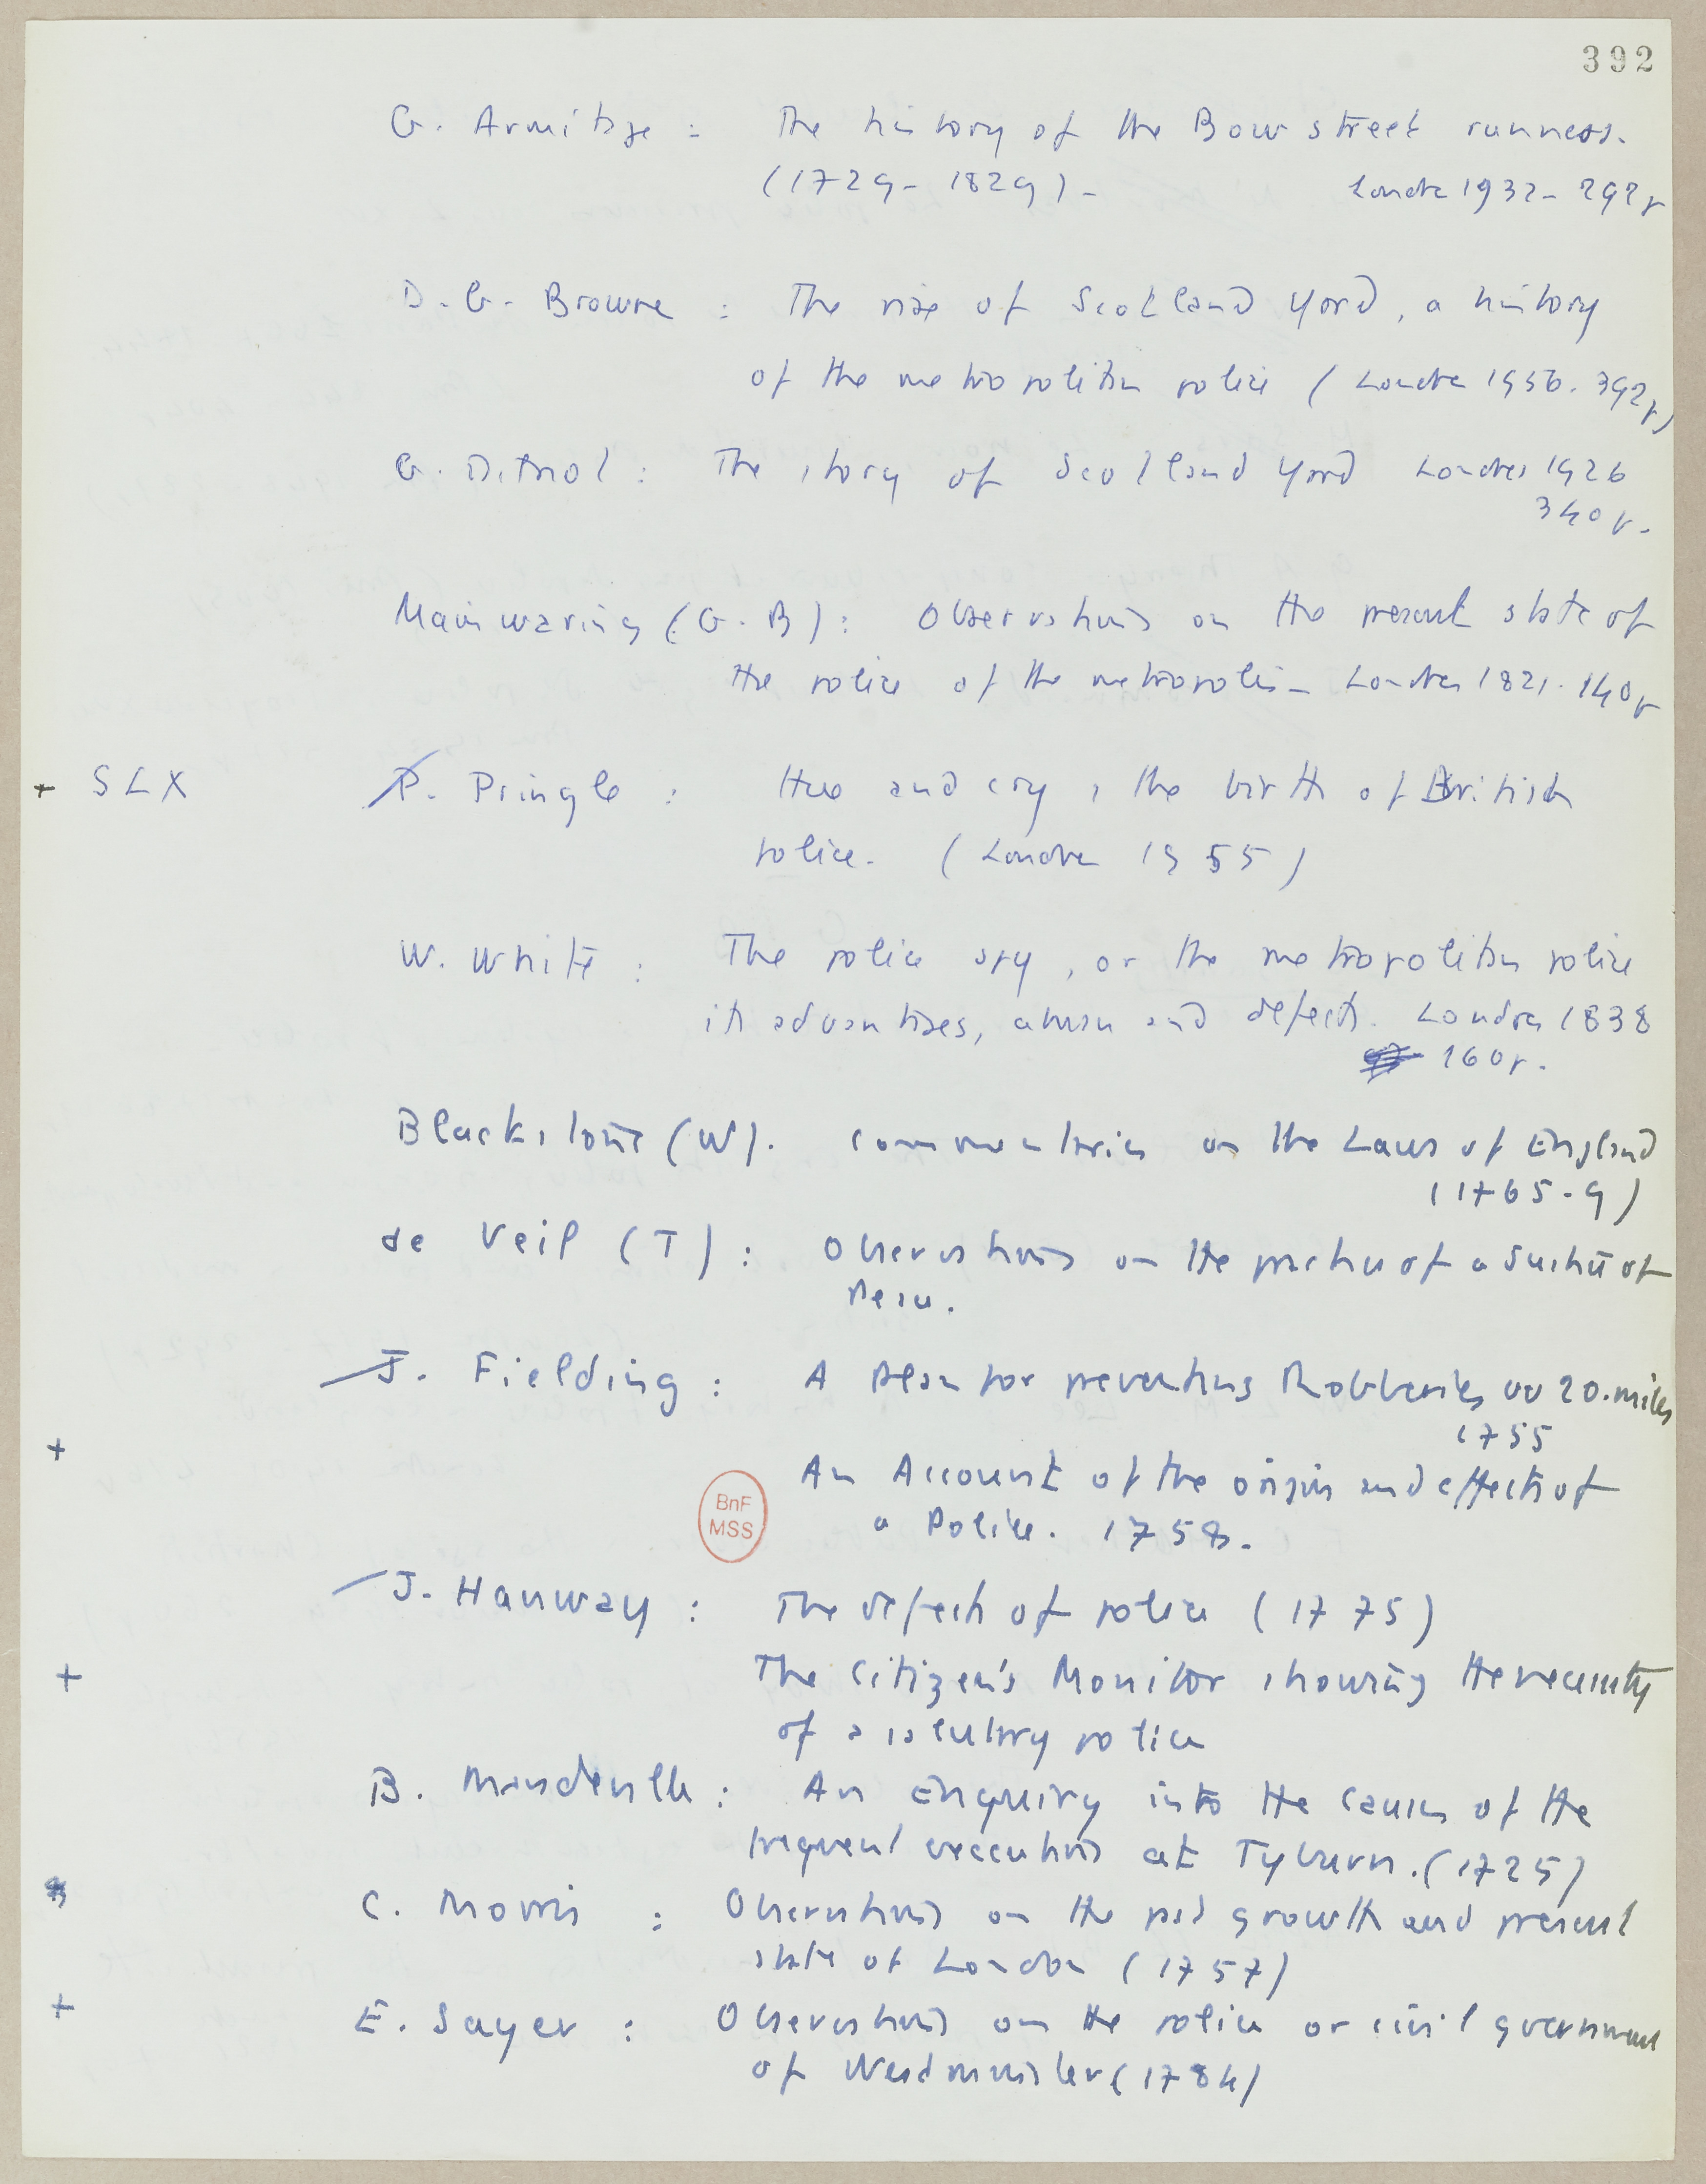 392
G. Armitage : The history of the Bow street runners.
(1729 - 1829) - Londres 1932 - 292 p
D. G. Browne : The rise of Scotland Yard, a history
of the metropolitan police (Londres 1956. 392 p)
G. Dilnot : The story of Scotland Yard Londres 1926
340 p.
Mainwaring (G. B) : Observations on the present state of
the police of the metropolis - Londres 1821. 140 p
+ SLX P. Pringle : Hue and cry, the birth of British
police. (Londres 1955)
W. White : The police spy, or the metropolitan police
its advantages, abuses and defects. Londres 1838
160 p.
Blackstone (W). Commentaries on the Laws of England
(1765-9)
de Veil (T) : Observations on the practice of a Justice of
Peace.
J. Fielding : A Plan for preventing Robberies 20. miles
1755
+ An Account of the origin and effects of
a Police. 1758.
BnF
MSS
J. Hanway : The defects of police (1775)
+ The Citizen's Monitor showing the necessity
of a salutary police
B. Mandeville : An Enquiry into the causes of the
frequent executions at Tyburn. (1725)
C. Morris : Observations on the past growth and present
state of London (1757)
+ E. Sayer : Observations on the police or civil government
of Westminster (1784)